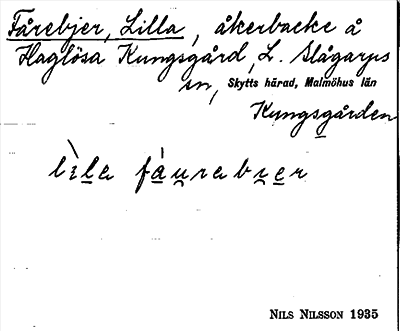 Fårebjer, Lilla, åkerbacke å
Haglösa Kungsgård, L. Slågarps
sn, Skytts härad, Malmöhus län
Kungsgården
lìla fàu̯rabi̯er
NILS NILSSON 1935